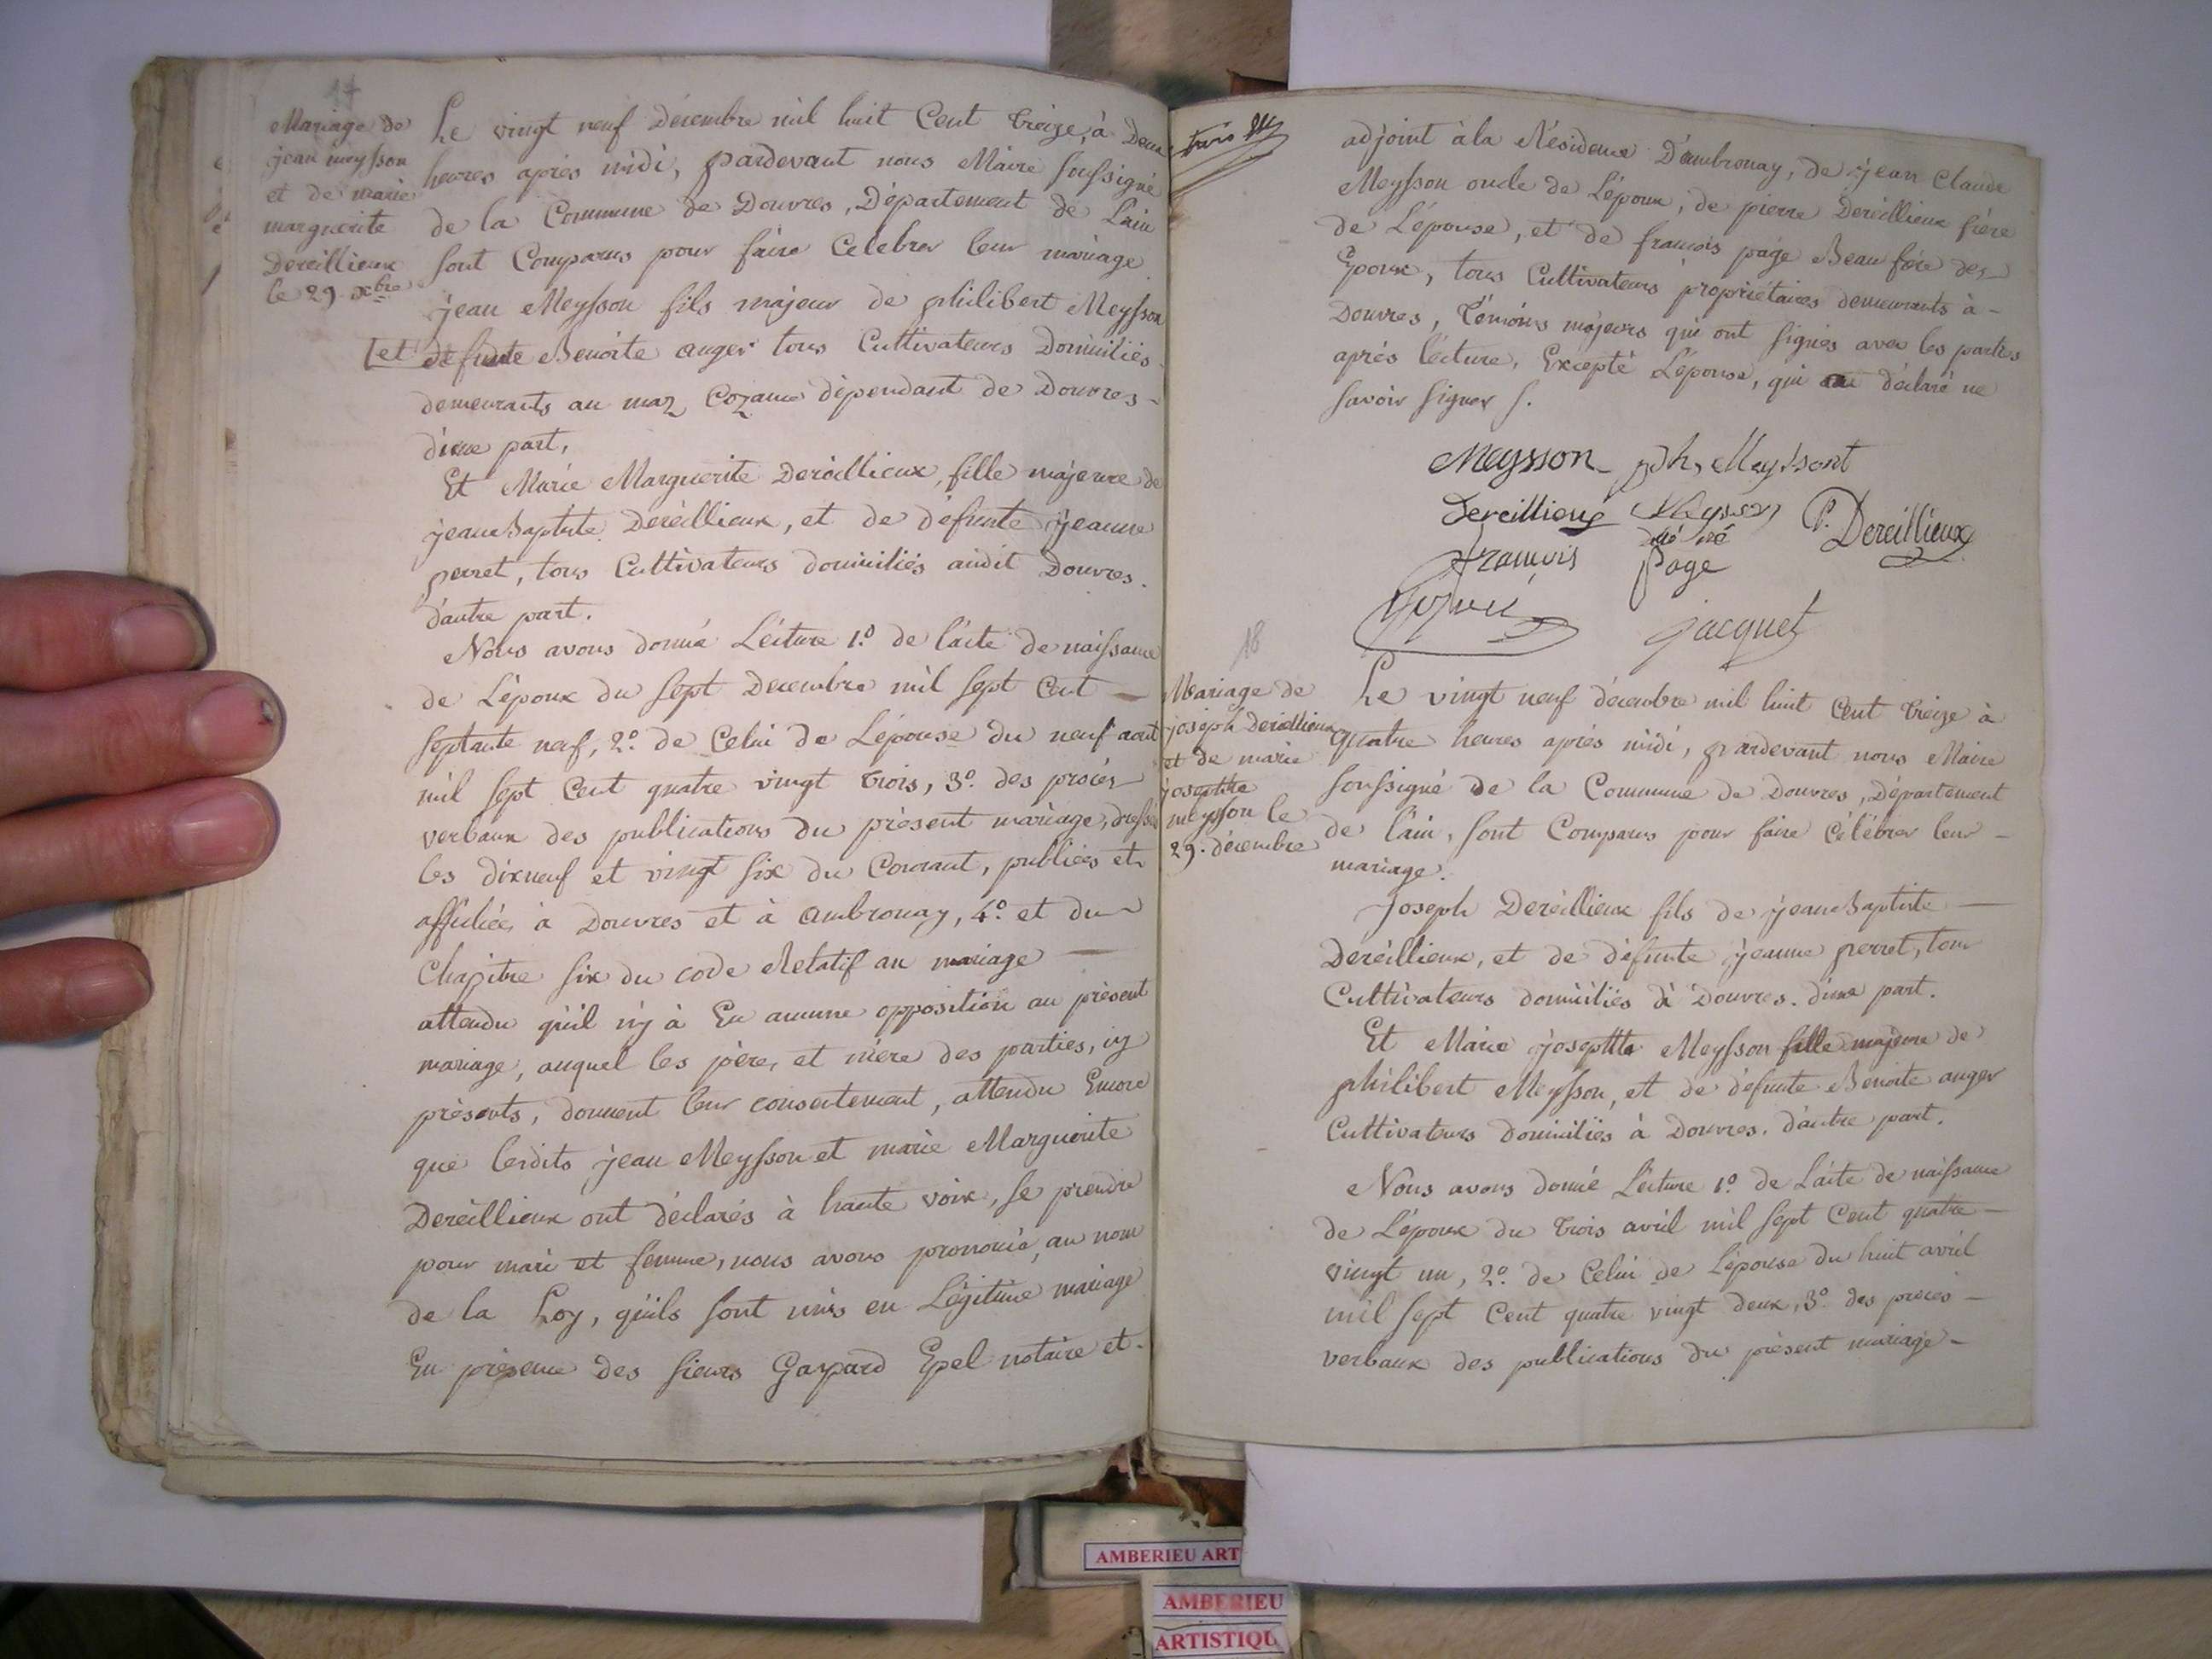 17
Mariage de
jean meysson
et de marie
marguerite
Dereillieux
le 29. xbre
Le vingt neuf Décembre mil huit Cent treize, à Deux
heures après midi, pardevant nous Maire soussigné
de la Commune de Douvres, Département de Lain
sont Comparus pour faire Celebrer leur mariage
jean Meysson fils majeur de philibert Meysson
et defunte Benoite auger tous Cultivateurs Domiciliés
demeurants au maz Cozance dépendant de Douvres -
d'une part,
Et Marie Marguerite Dereillieux, fille majeure de
jean Baptiste Dereillieux, et de défunte jeanne
perret, tous Cultivateurs domiciliés audit Douvres.
d'autre part.
Nous avons donné Lécture 1.o de l'acte de naissance
de L'époux du sept Decembre mil sept Cent —
septante neuf, 2.o de Celui de L'épouse du neuf aout
mil sept Cent quatre vingt trois, 3.o des procés
verbaux des publications du présent mariage, dressés
les dixneuf et vingt six du Courant, publiées et
affichées à Douvres et à ambronay, 4.o et du
Chapitre six du code Relatif au mariage —
attendu qu'il n'y à Eu aucune opposition au présent
mariage, auquel les père, et mère des parties, icy
présents, donnent leur consentement, attendu Encore
que lesdits jean Meysson et marie Marguerite
Dereillieux ont déclarés à haute voix, se prendre
pour mari et femme, nous avons prononcé, au nom
de la Loy, qu'ils sont unis en Légitime mariage
En présence des sieurs Gaspard Epel notaire et -
trois
adjoint à la Résidence D'ambronay, de jean Claude
Meysson oncle de L'époux, de pierre Dereillieux frère
de L'épouse, et de francois page Beau frère des
Epoux, tous Cultivateurs propriétaires demeurants à -
Douvres, témoins majeurs qui ont signés avec les parties
après lécture, Excepté L'épouse, qui a déclaré ne
savoir signer s.
Meysson ph, Meyssont
Dereillieux Meysson P. Dereillieux
francois page
jacquet
18
Mariage de
joseph Dereillieux
et de marie
josephte
meysson le
29. décembre
Le vingt neuf décembre mil huit Cent treize à
quatre heures après midi, pardevant nous Maire
soussigné de la Commune de Douvres, Département
de l'ain, sont Comparus pour faire Célébrer leur -
mariage.
Joseph Dereillieux fils de jean Baptiste —
Dereillieux, et de défunte jeanne perret, tous
Cultivateurs domiciliés à Douvres. d'une part.
Et Marie josephte Meysson fille majeure de
philibert Meysson, et de défunte Benoite auger
Cultivateurs domiciliés à Douvres. d'autre part.
Nous avons donné Lécture 1.o de L'acte de naissance
de L'époux du trois avril mil sept Cent quatre —
vingt un, 2.o de Celui de L'épouse du huit avril
mil sept Cent quatre vingt deux, 3.o des procés -
verbaux des publications du présent mariage -
AMBERIEU ART
AMBERIEU
ARTISTIQU